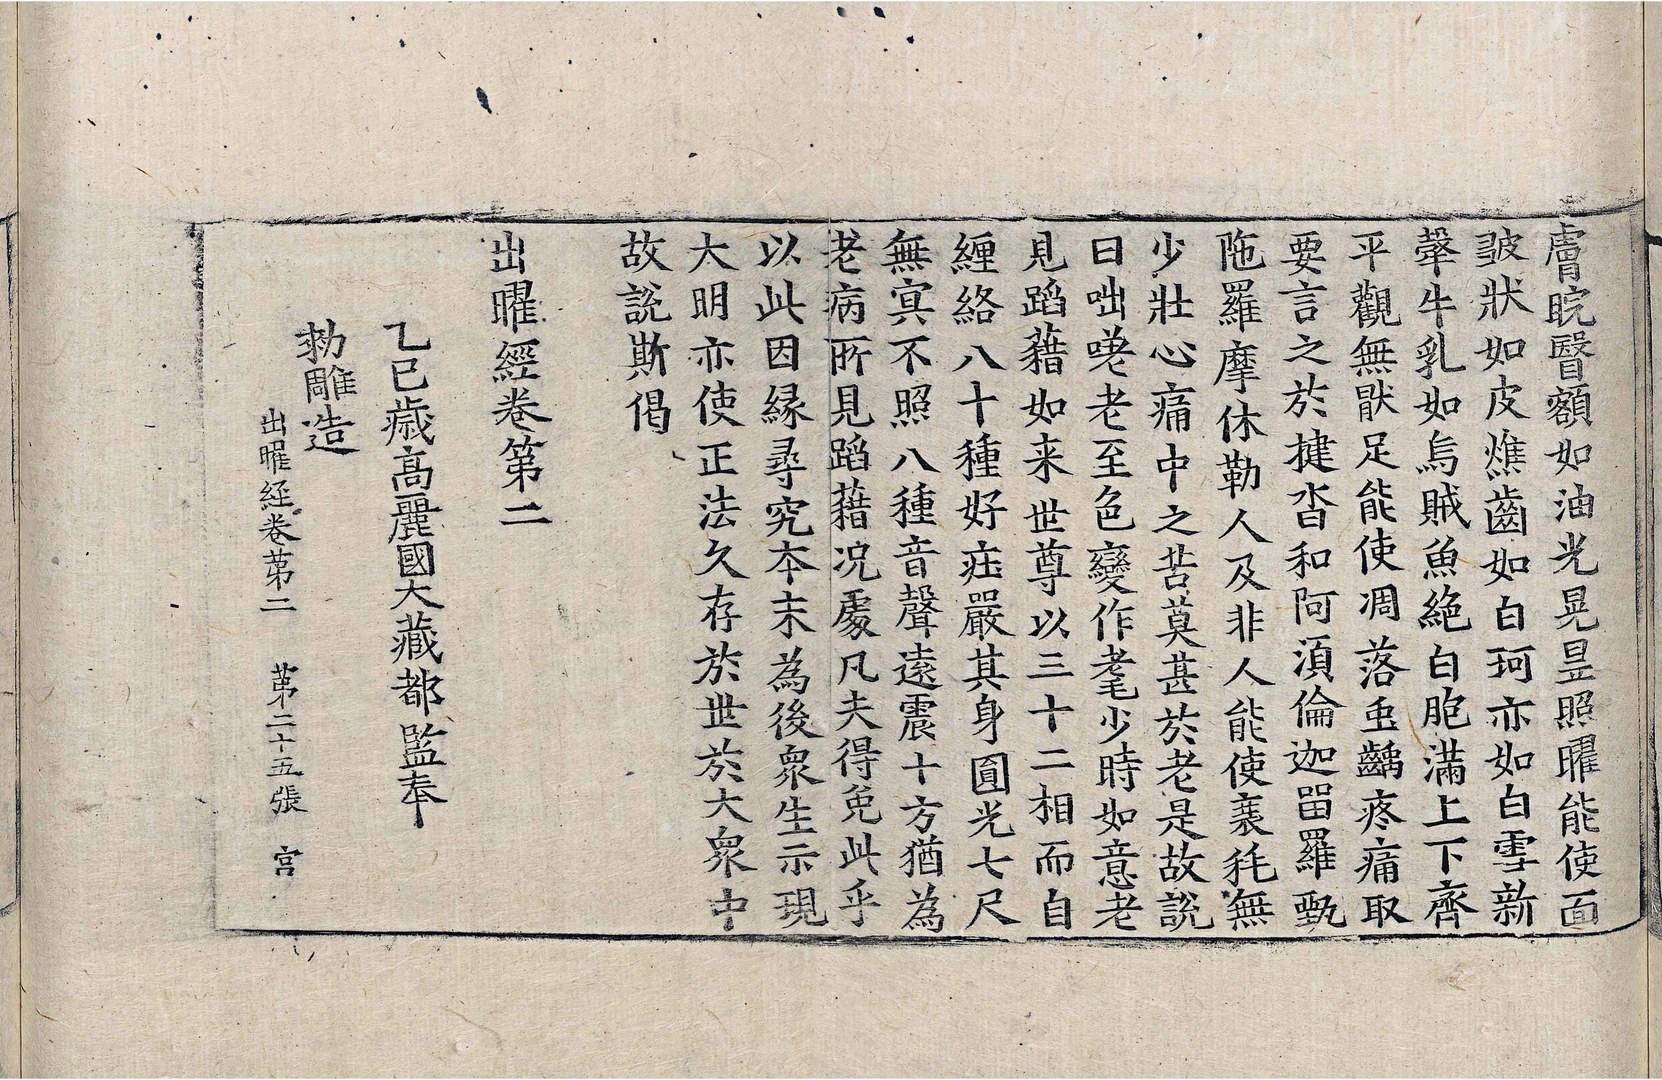 膚睆瞖額如油光晃昱照曜能使面
皺狀如皮燋齒如白珂亦如白雪新
犛牛乳如烏賊魚絶白胞滿上下齊
平觀無猒足能使凋落虫齲疼痛取
要言之於揵沓和阿湏倫迦留羅甄
陁羅摩休勒人及非人能使衰秏無
少壯心痛中之苦莫甚於老是故說
曰咄嘆老至色變作耄少時如意老
見蹈藉如来世尊以三十二相而自
纏絡八十種好莊嚴其身圓光七尺
無㝠不照八種音聲遠震十方猶為
老病所見蹈藉況處凡夫得免此乎
以此因縁尋究本末為後衆生示現
大明亦使正法久存於世於大衆中
故說斯偈
出曜經卷第二
乙巳歲高麗國大藏都監奉
勑雕造
出曜経卷第二 第二十五張 宫